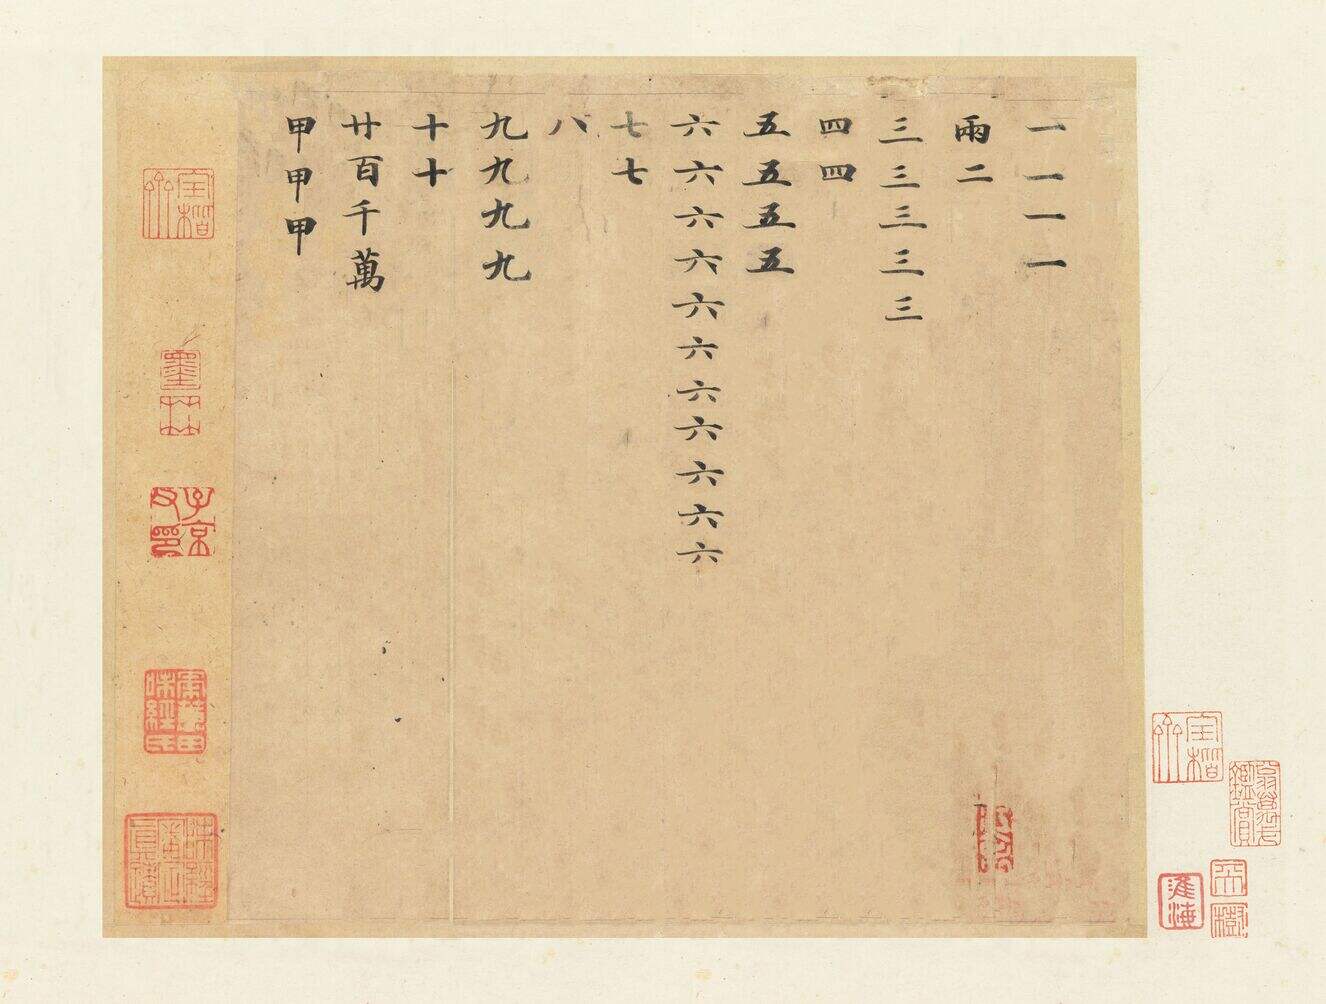 一一一一
兩二
三三三三三
四四
五五五五
六六六六六六六六六六六
七七
八
九九九九
十十
廿百千萬
甲甲甲